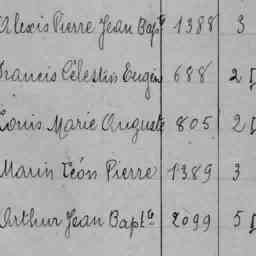 Alexis Pierre Jean Bapte 1388 3
Francis Célestin Eugène 688 2
Louis Marie Auguste 805 2
Marin Léon Pierre 1389 3
Arthur Jean Bapte 2099 5